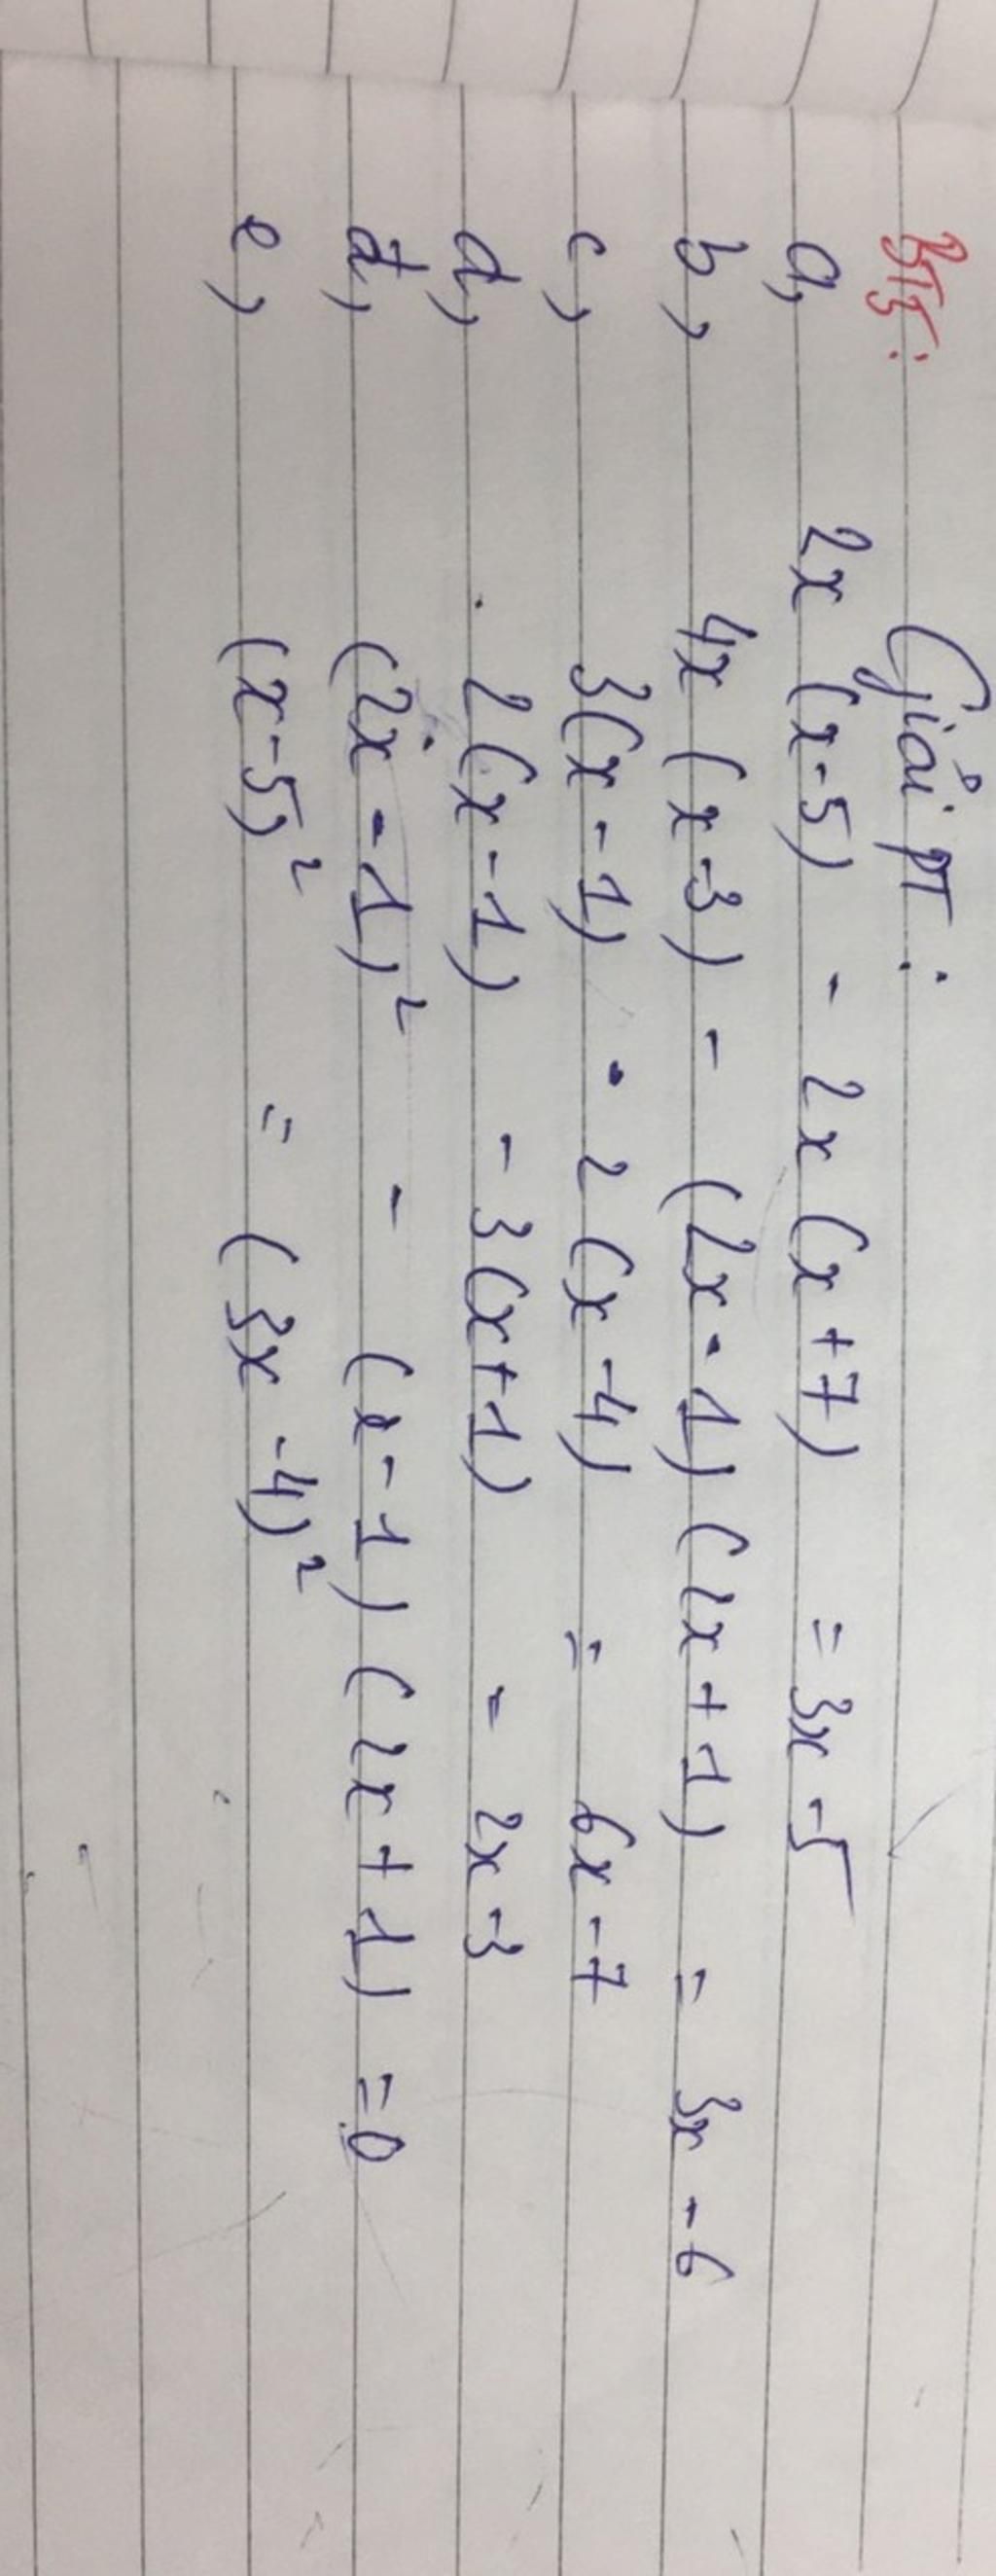 BT5: Giải pt:
a, 2x (x-5) - 2x (x+7) = 3x-5
b, 4x (x-3) - (2x-1) (2x+1) = 3x-6
c, 3(x-1) - 2 (x-4) = 6x-7
d, 2(x-1) - 3(x+1) = 2x-3
đ, (2x-1)² - (x-1) (2x+1) =0
e, (x-5)² = (3x-4)²